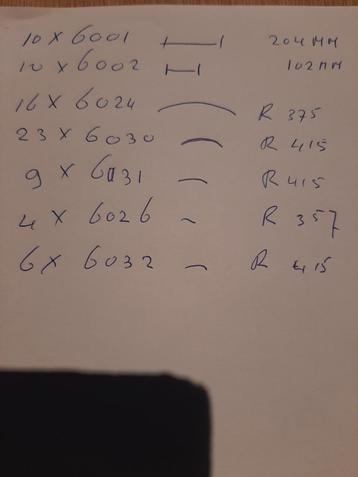 10 X 6001 204 MM
10 X 6002 102 MM
16 X 6024 R 375
23 X 6030 R 415
9 X 6031 R 415
4 X 6026 R 357
6 X 6032 R 415